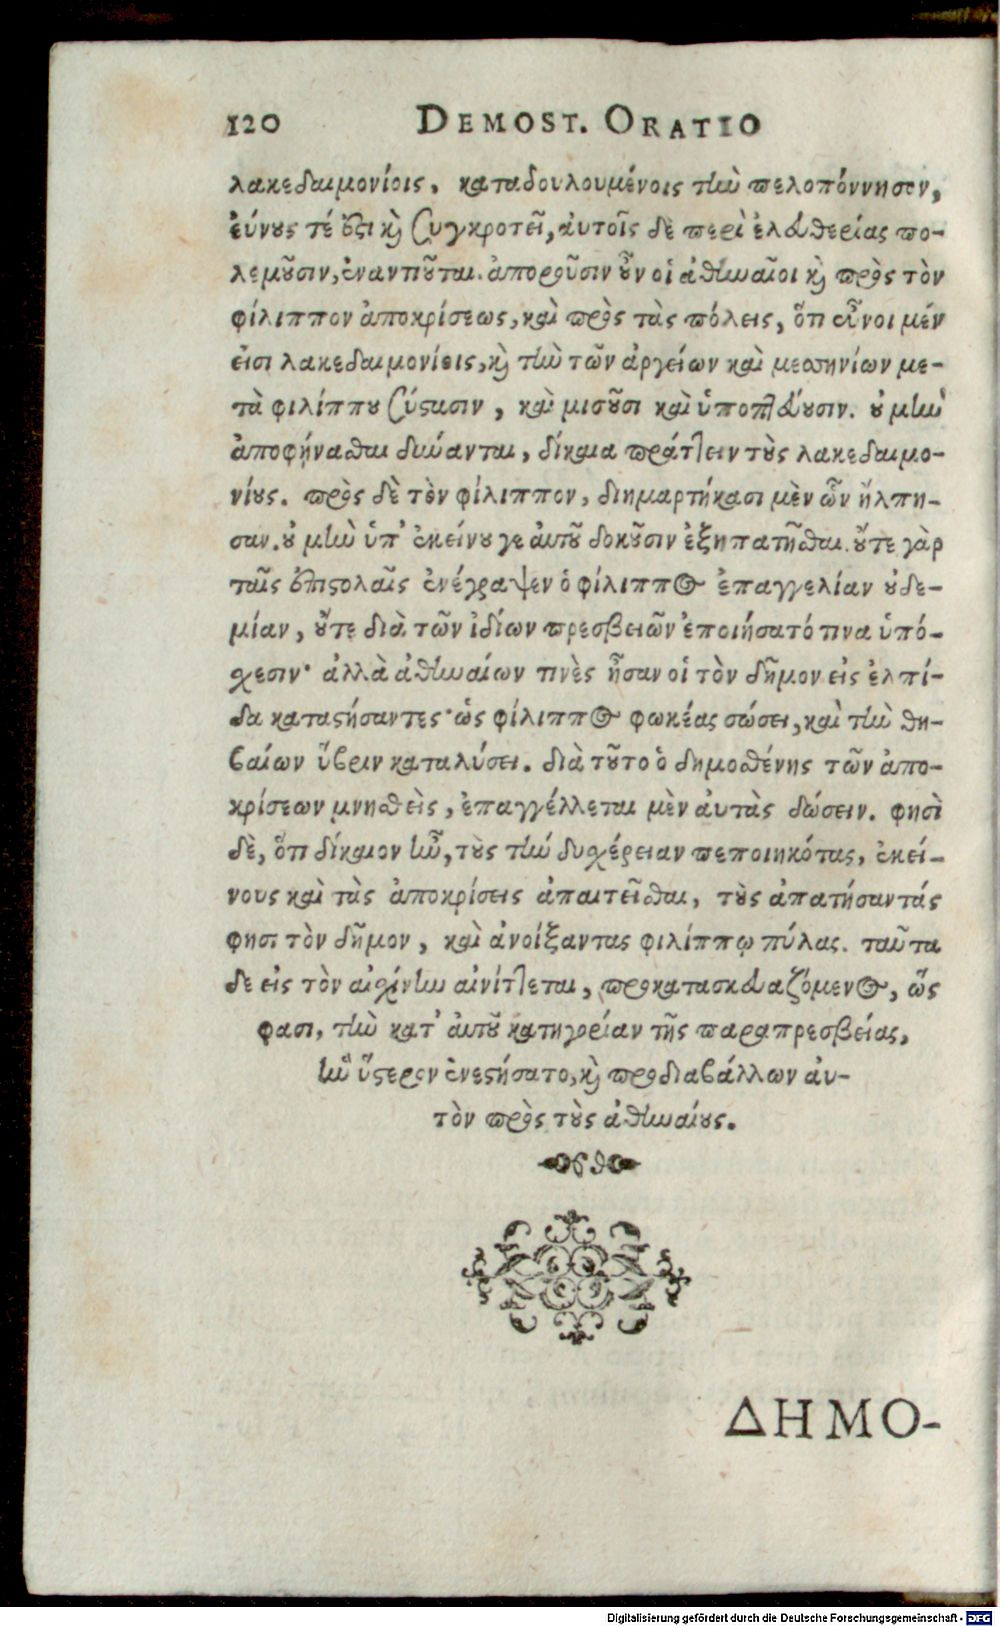 120 DEMOST. ORATIO
λακεδαιμονίοις, καταδουλουμένοις τὴν πελοπόννησον,
εύνους τέ ἐστι καὶ συγκροτεῖ, αὐτοῖς δὲ περὶ ἐλευθερίας πο-
λεμοῦσιν, ἐναντιοῦται. ἀποροῦσιν οὖν οἱ ἀθηναῖοι καὶ πρὸς τὸν
φίλιππον ἀποκρίσεως, καὶ πρὸς τὰς πόλεις, ὅτι εὖνοι μέν
εἰσι λακεδαιμονίοις, καὶ τὴν τῶν ἀργείων καὶ μεσηνίων με-
τὰ φιλίππου σύστασιν, καὶ μισοῦσι καὶ ὑποπτεύουσιν. οὐ μὴν
ἀποφήνασθαι δύνανται, δίκαια πράττειν τοὺς λακεδαιμο-
νίους. πρὸς δὲ τὸν φίλιππον, διημαρτήκασι μὲν ὧν ἤλπη-
σαν. οὐ μὴν ὑπ' ἐκείνου γε αὐτοῦ δοκοῦσιν ἐξηπατῆσθαι. οὔτε γὰρ
ταῖς ἐπιστολαῖς ἐνέγραψεν ὁ φίλιππος ἐπαγγελίαν οὐδε-
μίαν, οὔτε διὰ τῶν ἰδίων πρεσβειῶν ἐποιήσατό τινα ὑπό-
σχεσιν· ἀλλὰ ἀθηναίων τινὲς ἦσαν οἱ τὸν δῆμον εἰς ἐλπί-
δα καταστήσαντες· ὡς φίλιππος φωκέας σώσει, καὶ τὴν θη-
βαίων ὕβριν καταλύσει. διὰ τοῦτο ὁ δημοσθένης τῶν ἀπο-
κρίσεων μνησθεὶς, ἐπαγγέλλεται μὲν αὐτὰς δώσειν. φησὶ
δὲ, ὅτι δίκαιον ἦν, τοὺς τὴν δυσχέρειαν πεποιηκότας, ἐκεί-
νους καὶ τὰς ἀποκρίσεις ἀπαιτεῖσθαι, τοὺς ἀπατήσαντάς
φησι τὸν δῆμον, καὶ ἀνοίξαντας φιλίππῳ πύλας. ταῦτα
δε εἰς τὸν αἰσχίνην αἰνίττεται, προκατασκευαζόμενος, ὥς
φασι, τὴν κατ' αὐτοῦ κατηγορίαν τῆς παραπρεσβείας,
ἣν ὕστερον ἐνεστήσατο, καὶ προδιαβάλλων αὐ-
τὸν πρὸς τοὺς ἀθηναίους.
ΔΗΜΟ-
Digitalisierung gefördert durch die Deutsche Forschungsgemeinschaft - DFG